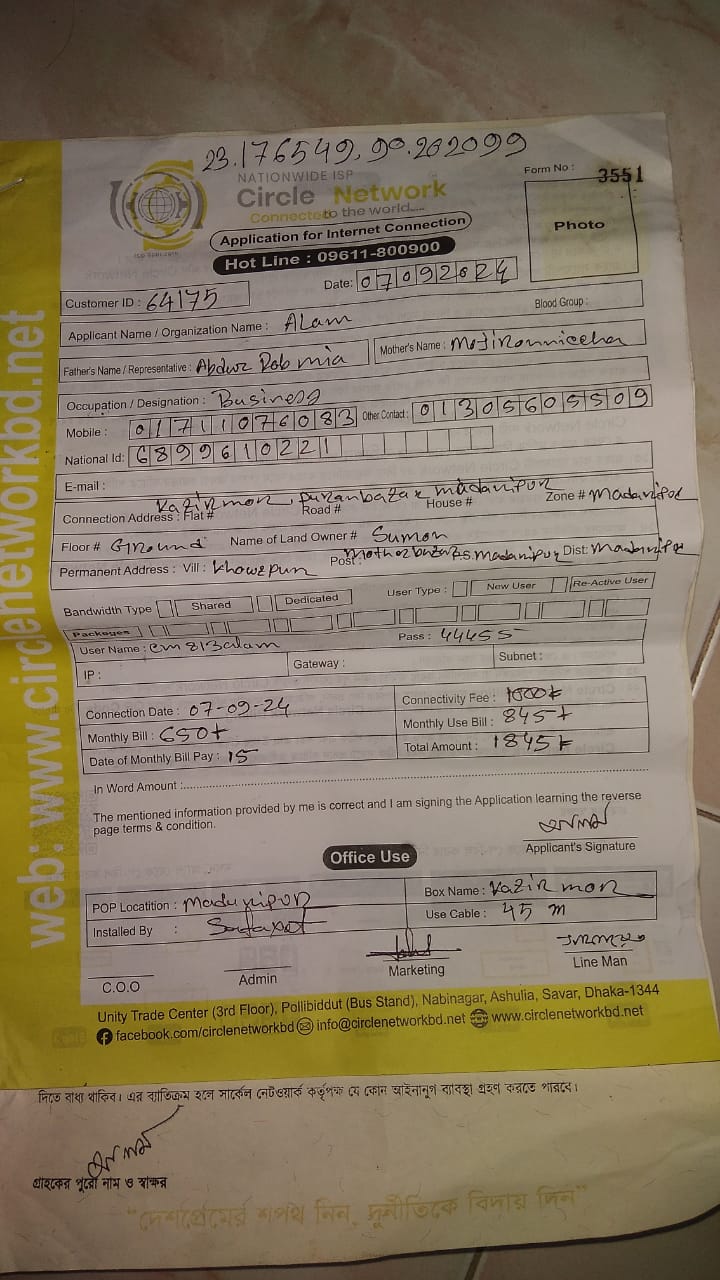 23.176549, 90.202099
NATIONWIDE ISP
Circle Network
Connected to the world.....
Application for Internet Connection
Hot Line : 09611-800900
Form No : 3551
Photo
Date: 07092024
Customer ID : 64175
Blood Group :
Applicant Name / Organization Name : Alam
Father's Name / Representative : Abdur Rob mia
Mother's Name :
Occupation / Designation : Business
Mobile : 01711076083 Other Contact : 01305605509
National Id: 6899610221
E-mail :
Kazirmor, puranbazar madaripur
Connection Address : Flat # Road # House # Zone # Madaripur
Floor # Ground Name of Land Owner # Sumon
Permanent Address : Vill : Post : P.S. Madaripur Dist: Madaripur
Bandwidth Type Shared Dedicated User Type : New User Re-Active User
Packages
User Name : Pass : 44455
IP : Gateway : Subnet :
Connection Date : 07-09-24
Connectivity Fee : 1000t
Monthly Bill : 650t
Monthly Use Bill : 845t
Date of Monthly Bill Pay : 15
Total Amount : 1845t
In Word Amount :
The mentioned information provided by me is correct and I am signing the Application learning the reverse
page terms & condition.
আলম
Applicant's Signature
Office Use
POP Locatition : Madaripur
Box Name : Kazir mor
Installed By :
Use Cable : 45 m
C.O.O
Admin
Marketing
Line Man
Unity Trade Center (3rd Floor), Pollibiddut (Bus Stand), Nabinagar, Ashulia, Savar, Dhaka-1344
facebook.com/circlenetworkbd info@circlenetworkbd.net www.circlenetworkbd.net
web: www.circlenetworkbd.net
দিতে বাধ্য থাকিব। এর ব্যতিক্রম হলে সার্কেল নেটওয়ার্ক কর্তৃপক্ষ যে কোন আইনানুগ ব্যবস্থা গ্রহণ করতে পারবে।
আলম
গ্রাহকের পুরো নাম ও স্বাক্ষর
“দেশপ্রেমের শপথ নিন, দুর্নীতিকে বিদায় দিন”